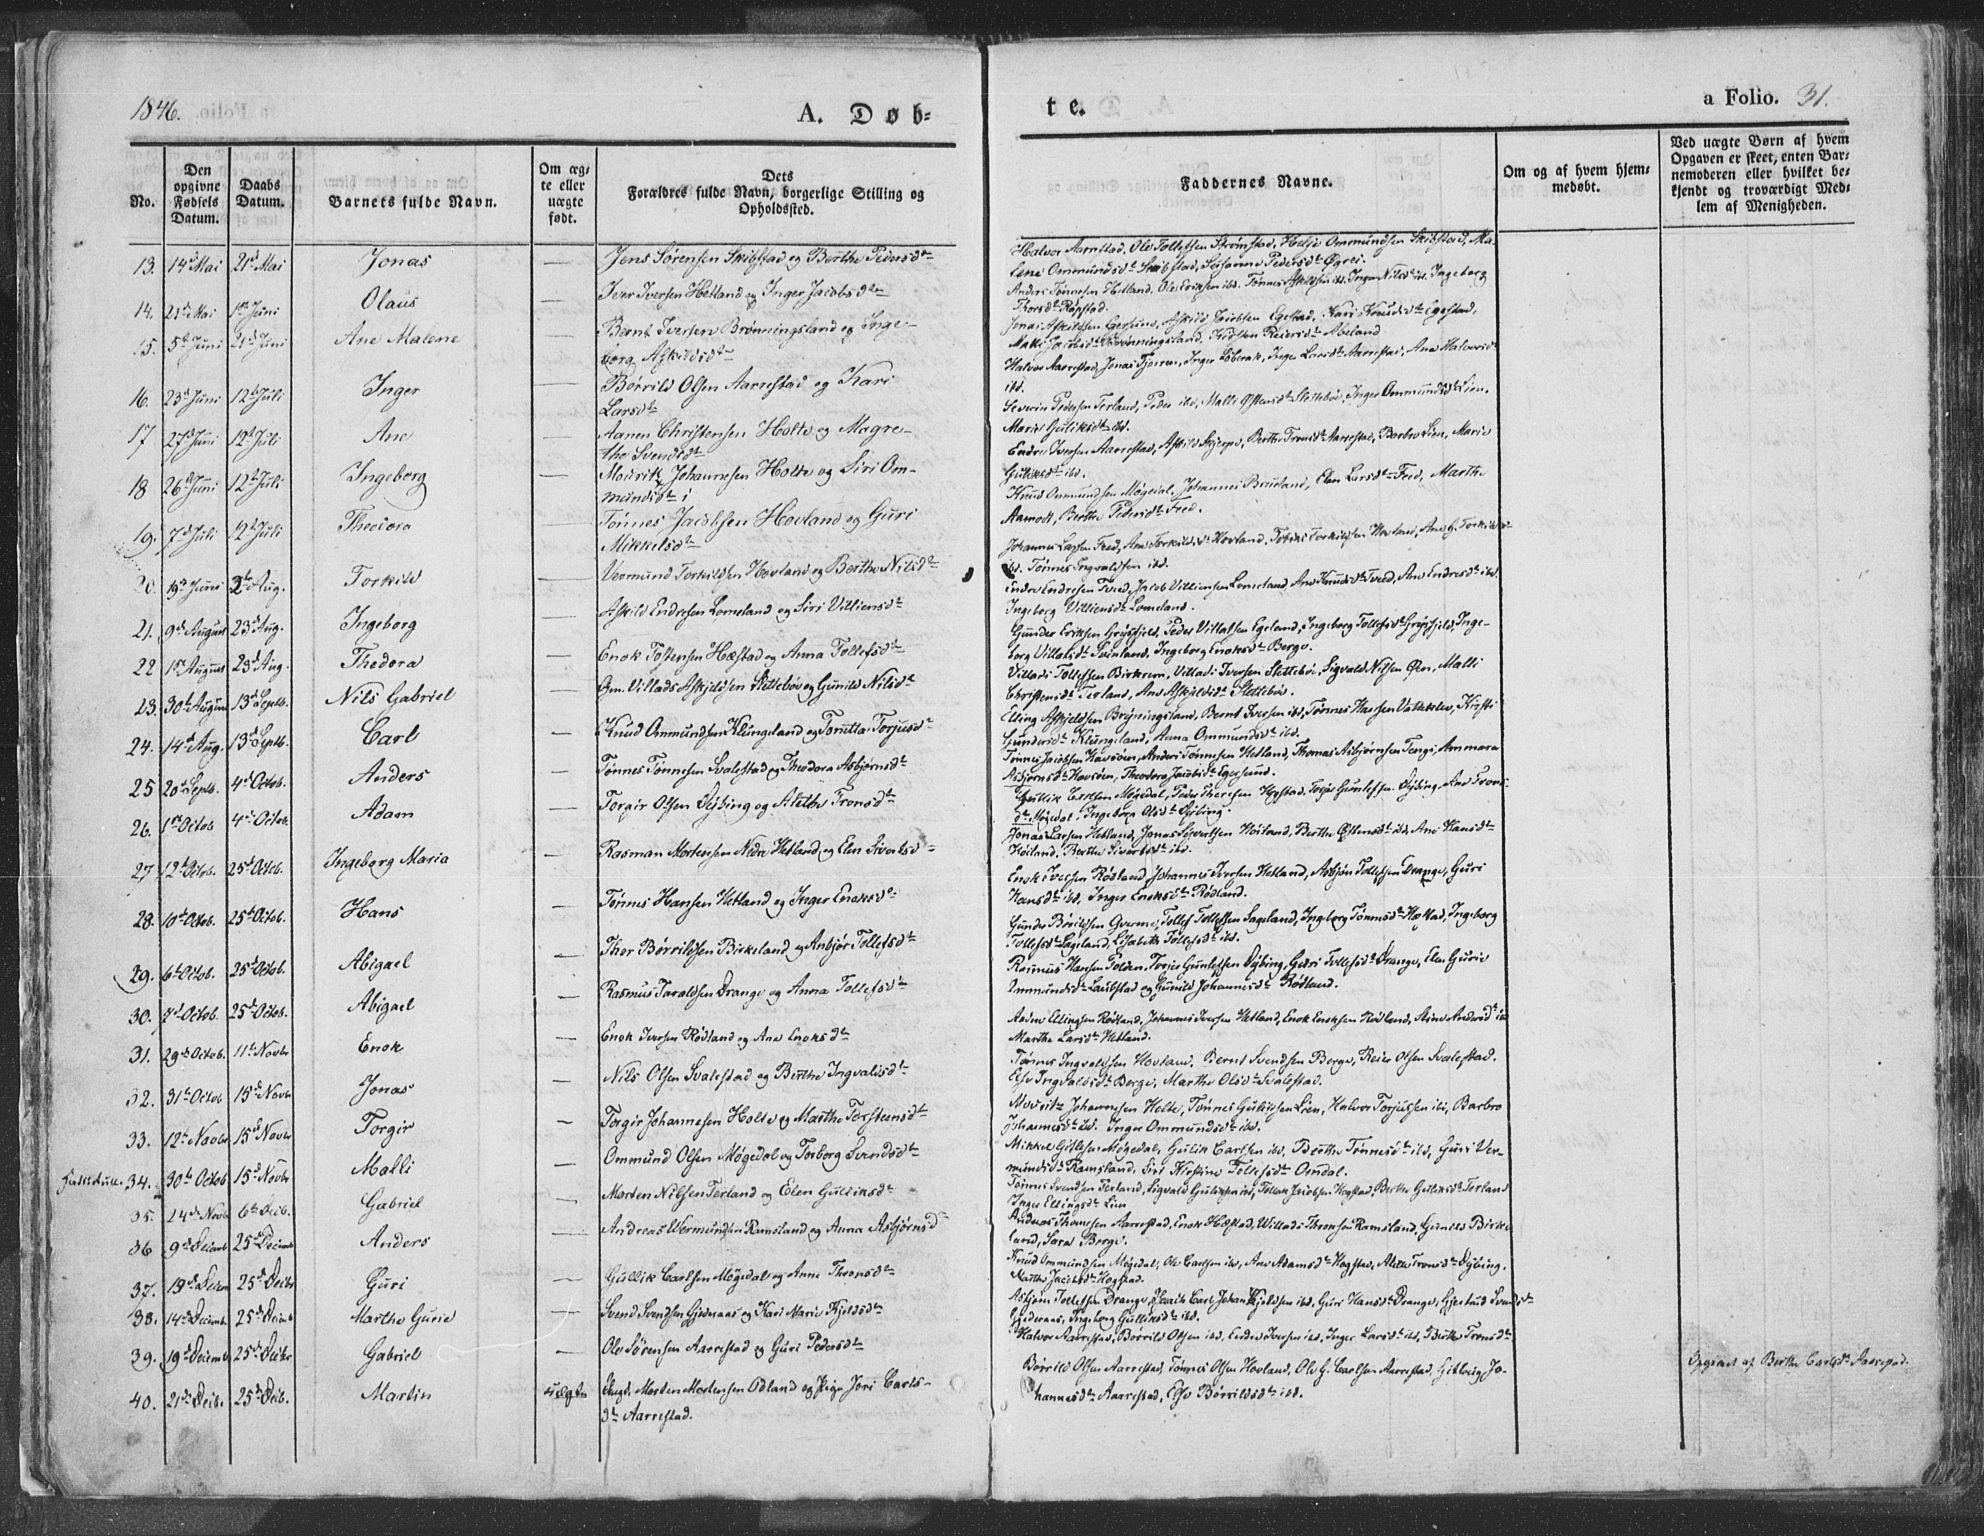 1846.
A. Døb-
te.
a Folio. 31.
No.
Den opgivne Fødsels Datum.
Daabs Datum.
Barnets fulde Navn.
Om ægte eller uægte født.
Dets Forældres fulde Navn, borgerlige Stilling og Opholdssted.
Faddernes Navne.
Om og af hvem hjemmedøbt.
Ved uægte Børn af hvem Opgaven er skeet, enten Barnemoderen eller hvilket bekjendt og troværdigt Medlem af Menigheden.
13. 14d Mai 21d Mai Jonas — Jens Sørensen Skibstad og Berthe Pedersdtr
Halvor Aarrestad, Ole Tollefsen Strømstad, Helje Ommundsen Skibstad, Malene Ommundsdtr Skibstad, Susanne Pedersdtr Øgrei.
14. 21d Mai 1ste Juni Olaus — Iver Iversen Hetland og Inger Jacobsdtr
Anders Tønnesen Hetland, Ole Eriksen ibd. Tønnes Askildsen ibd. Inger Nilsdtr ibd. Ingeborg Thorsdtr Røpstad.
15. 5te Juni 21d Juni Ane Malene — Bernt Iversen Brønningsland og Ingeborg Askildsdtr
Jonas Askildsen Egersund, Askild Egestad, Kari Knudsdtr Egestad,
16. 23d Juni 12te Juli Inger — Børrild Olsen Aarrestad og Kari Larsdtr
Halvor Aarrestad, Jonas Inger Larsdtr Aarrestad, Ane Halvorsdtr ibd.
17 27d Juni 12te Juli Ane — Aanen Christensen Holte og Magrethe Svendsdtr
Severin Pedersen Terland, Peder ibd, Malli Østensdtr Slettebøe, Inger Ommundsdtr Lien, Marie Guliksdtr ibd.
18 26d Juni 12te Juli Ingeborg — Mouritz Johannesen Holte og Siri Ommundsdtr
Endre Iversen Aarrestad, Askild Skjerpe, Berthe Tronsdtr Aarrestad, Barbro Lien, Marie Guliksdtr ibd.
19. 7d Juli 12te Juli Theodora — Tønnes Jacobsen Hovland og Guri Mikkelsdtr
Knud Ommundsen Møgedal, Johannes Birkeland, Elen Larsdtr Fred, Marthe Aamodt, Berthe Pedersdtr Fred.
20. 19de Juni 2den Aug. Torkild — Vermund Torkildsen Hovland og Berthe Nilsdtr
Johannes Larsen Fred, Ane Torkildsdtr Hovland, Tobias Torkildsen Hovland, Ane G. Torkildsdtr ibd. Tønnes Ingvaldsen ibd.
21. 9d August 23d Aug. Ingeborg — Askild Endresen Lomeland og Siri Villiensdtr
Endre Endresen Fred, Jacob Villiensen Lomeland, Ane Knudsdtr Fred, Ane Endresdtr ibd. Ingeborg Villiensdtr Lomeland.
22 1ste August 23d Aug. Thedora — Enok Tostensen Hæstad og Anna Tollefsdtr
Gunder Eriksen Grøsfjeld, Peder Villatsen Egeland, Ingeborg Tollefsdtr Grøsfjeld, Ingeborg Villatsdtr Svinland, Ingeborg Enoksdtr Berge.
23. 30te August 13d Septb. Nils Gabriel — Gm. Villads Askjeldsen Slettebøe og Gunild Nilsdtr
Villads Tollefsen Birkrem, Villads Iversen Slettebøe, Sigvald Nilsen Øen, Malli Christensdtr Terland, Ane Askjeldsdtr Slettebøe.
24. 14d Aug. 13d Septb. Carl — Knud Ommundsen Klungeland og Toretta Torjusdtr
Elling Askjeldsen Bryningsland, Bernt Iversen ibd, Tønnes Hansen Kirsti Gundersdtr Klungeland, Anna Ommundsdtr ibd.
25 20d Septb. 4d Octob. Anders — Tønnes Tønnesen Svalestad og Theodora Asbjørnsdtr
Tønnes Jacobsen Havsøen, Anders Tønnesen Hetland, Thomas Asbjørnsen Tengs, Anmara Asbjørnsdtr Havsøen, Theodora Jacobsdtr Egersund.
26. 1ste Octob 4d Octob. Adam — Torgir Olsen Dybing og Alethe Tronsdtr
Gullik Carlsen Møgedal, Peder Theresen Hogstad, Torjer Gunlefsen Dybing, Ane Tronsdtr Møgedal, Ingeborg Olsdtr Dybing.
27 12te Octob. 25d Octob. Ingeborg Maria — Rasman Mortensen Nedre Hetland og Elen Sivertsdtr
Jonas Larsen Hetland, Jonas Sivertsen Høiland, Berthe Østensdtr ibd, Ane Hansdtr Høiland, Berthe Sivertsdtr ibd.
28. 10de Octob. 25d Octob. Hans — Tønnes Hansen Hetland og Inger Enoksdtr
Enok Iversen Rødland, Johannes Iversen Hetland, Asbjørn Tollefsen Drange, Guri Hansdtr ibd, Inger Enoksdtr Rødland.
29. 6te Octob. 25d Octob. Abigael — Thor Børrildsen Birkeland og Anbjør Tollefsdtr
Gunder Børildsen Tollef Tollefsen Sageland, Ingeborg Tønnesdtr Hæstad, Ingeborg Tollefsdtr Sageland, Elisabeth Tollefsdtr ibd.
30. 7d Octob. 25d Octob. Abigael — Rasmus Taraldsen Drange og Anna Tollefsdtr
Rasmus Hansen Tolden, Torjer Gunlefsen Dybing, Guri Tollefsdtr Drange, Elen Gurie Ommundsdtr og Gunild Johannesdtr Rødland.
31. 29de Octob. 11te Novbr Enok — Enok Iversen Rødland og Ane Enoksdtr
Andre Ellingsen Rødland, Johannes Iversen Hetland, Enok Enoksen Rødland, Ane Andersdtr ibd Marthe Larsdtr Hetland.
32. 31te Octob 15d Novbr Jonas — Nils Olsen Svalestad og Berthe Ingvaldsdtr
Tønnes Ingvaldsen Hovland, Bernt Svendsen Berge, Reier Olsen Svalestad. Else Ingvaldsdtr Berge, Marthe Olsdtr Svalestad.
33. 12te Novbr 15d Novbr Torgir — Torgir Johannesen Holte og Marthe Torstensdtr
Movritz Johannesen Holte, Tønnes Guliksen Lien, Halvor Torjussen ibd, Barbro Johannesdtr ibd. Inger Ommundsdtr ibd.
34. 30te Octob 15d Novbr Malli — Ommund Olsen Møgedal og Torborg Svendsdtr
Mikkel Gitlesen Møgedal, Gulik Carlsen ibd, Berthe Tønnesdtr ibd, Guri Vermundsdtr Ramsland, Siri Kirstine Tollefsdtr Omdal.
35. 24d Novbr 6te Decb. Gabriel — Morten Nilsen Terland og Elen Gulliksdtr
Tønnes Svendsen Terland, Sigvald Guliksen ibd, Tollak Jacobsen Hogstad, Berthe Guliksdtr Terland Inger Ellingsdtr Lien
36 9d Decemb 25d Decemb Anders — Andreas Wermundsen Ramsland og Anna Asbjørnsdtr
Andreas Thomesen Aarrestad, Enok Hæstad, Willads Thomsen Ramsland, Gunild Birkeland, Sara Berge.
37. 19d Decem 25d Decbr Guri — Gullik Carlsen Møgedal og Anne Thronsdtr
Knud Ommundsen Møgedal, Ole Carlsen ibd, Ane Adamsdtr Hogstad, Alethe Tronsdtr Dybing. Marthe Jacobsdtr Hogstad.
38. 14de Decemb 25d Decemb Marthe Gurie — Svend Svendsen Gjedraas og Kari Marie Kjeldsdtr
Asbjørn Tollefsen Drange, Carl Johan Kjeldsen ibd, Guri Hansdtr Drange, Gjertrud Svendsdtr Gjedraas, Ingeborg Gulliksdtr ibd.
39. 19d Decemb 25d Decbr Gabriel — Ole Sørensen Aarrestad og Guri Pedersdtr
Halvor Aarrestad, Børrild Olsen ibd, Endre Iversen ibd, Inger Larsdtr ibd, Berthe Tronsdtr
40. 21de Decbr. 25d Decb. Martin uægte Ungk. Morten Mortensen Odland og Pige Jori Carlsdtr Aarrestad.
Børrild Olsen Aarrestad, Tønnes Olsen Hovland, Ole G. Carlsen Aarrestad, Gitlaug Johannesdtr Aarrestad, Else Børrildsdtr ibd.
Opgivet af Berthe Carlsdtr Aarrestad.